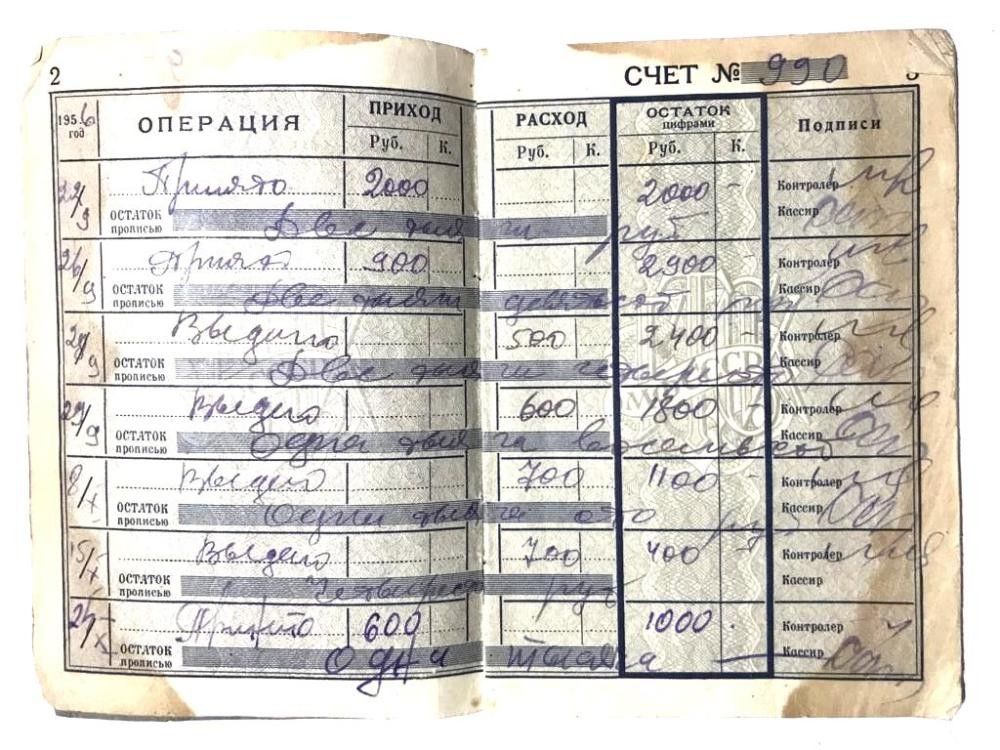 2 СЧЕТ № 990
1956 год ОПЕРАЦИЯ ПРИХОД РАСХОД ОСТАТОК цифрами Подписи
Руб. К. Руб. К. Руб. К.
Принято 2000 2000 - Контролер
ОСТАТОК прописью Две тысячи руб Кассир
26/9 Принято 900 2900 - Контролер
ОСТАТОК прописью Две тысячи девятьсот руб Кассир
Выдано 500 2400 - Контролер
ОСТАТОК прописью Две тысячи четыреста Кассир
29/9 Выдано 600 1800 - Контролер
ОСТАТОК прописью Одна тысяча восемьсот Кассир
8/X Выдано 700 1100 - Контролер
ОСТАТОК прописью Одна тысяча сто руб Кассир
15/X Выдано 700 400 - Контролер
ОСТАТОК прописью Четыреста руб Кассир
Принято 600 1000 Контролер
ОСТАТОК прописью Одна тысяча — Кассир